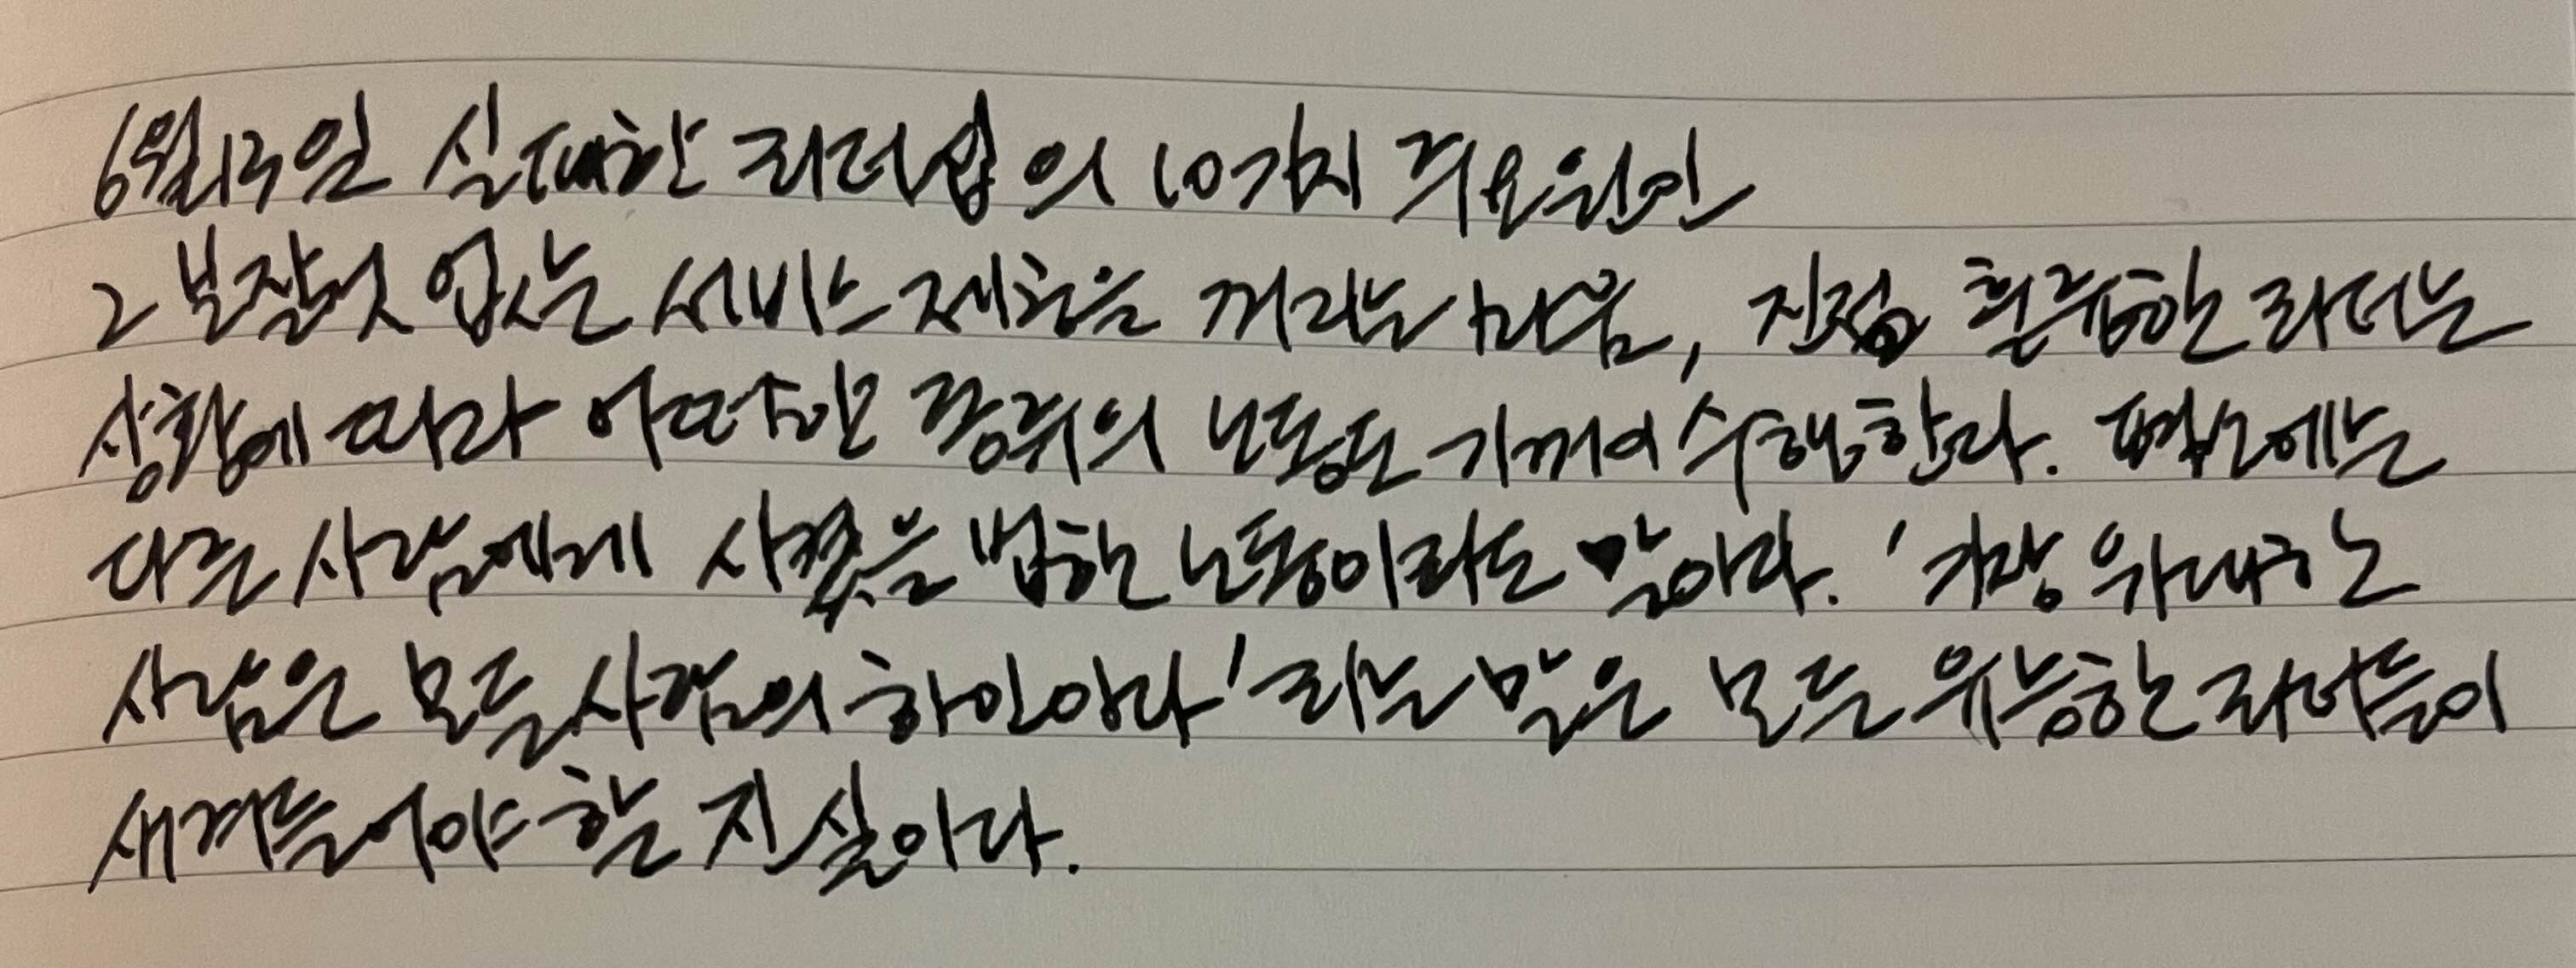 6월13일 실패한 리더십의 10가지 주요원인
2 보잘것 없는 서비스 제공을 꺼리는 마음, 진정 훌륭한 리더는
상황에 따라 어떠한 종류의 노동도 기꺼이 수행한다. 평소에는
다른 사람에게 시켰을 법한 노동이라도 말이다. '가장 위대한
사람은 모든 사람의 하인이다'라는 말은 모든 유능한 리더들이
새겨들어야 할 진실이다.